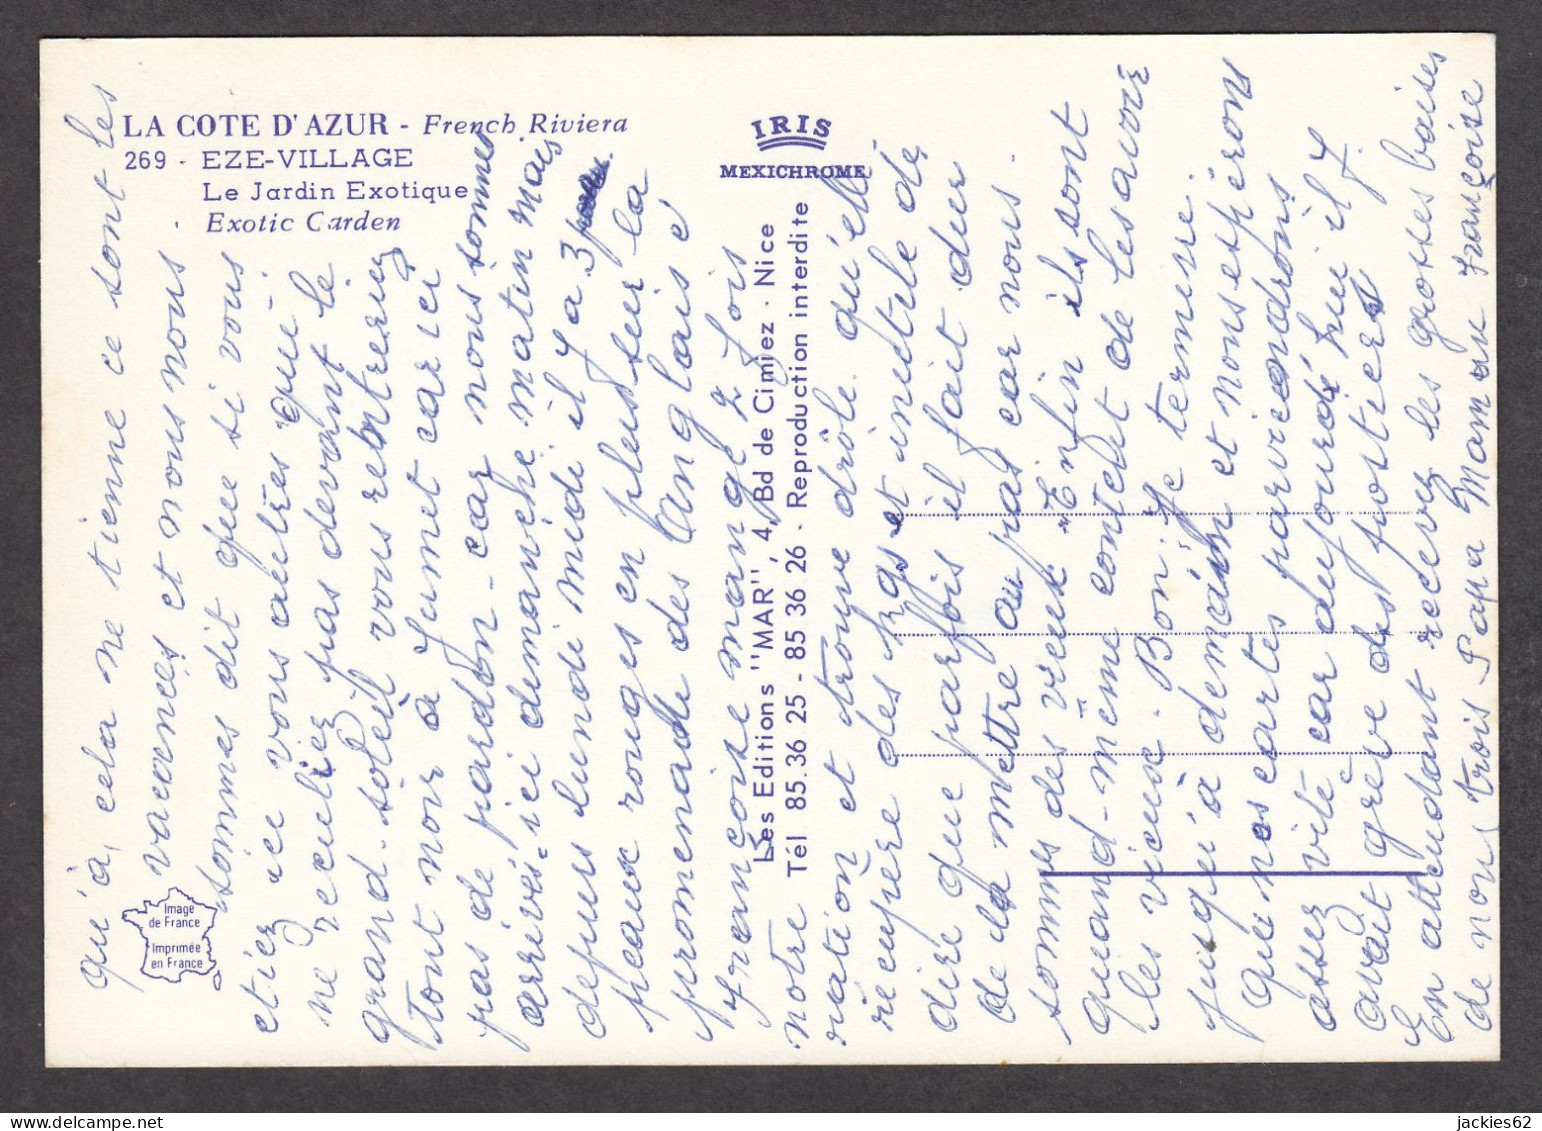 LA COTE D'AZUR - French Riviera
269 - EZE-VILLAGE
Le Jardin Exotique
Exotic Garden
IRIS
MEXICHROME
Les Editions "MAR", 4, Bd de Cimiez - Nice
Tél 85.36 25 - 85 36 26 - Reproduction interdite
Image
de France
Imprimée
en France
qu'à, cela ne tienne ce sont les
vacances et nous nous
sommes dit que si vous
etiez ice vous autres que
ne recullez pas devant le
grand soleil vous rentreriez
tout noir à Jumet car ici
pas de pardon - car nous sommes
arrivés ici dimanche matin mais
depuis lundi midi il y a 3
peaux rouges en plus sur la
promenade des Anglais e
françoise mange 2 fois
notre ration et trouve drôle qu'elle
recupère des kgs et inutile de
dire que parfois il fait dur
de la mettre au pas car nous
sommes des vieux "Enfin ils sont
quand-même contebt de les avoir
les vieux. Bon. Je termine
jusqu'à demain et nous espérons
que nos cartes parviendrons
assez vite car aujourd'hui il y
avait grève des postiers
En attendant recevez les grosses baises
de nous trois Papa Maman françoise
jackies62